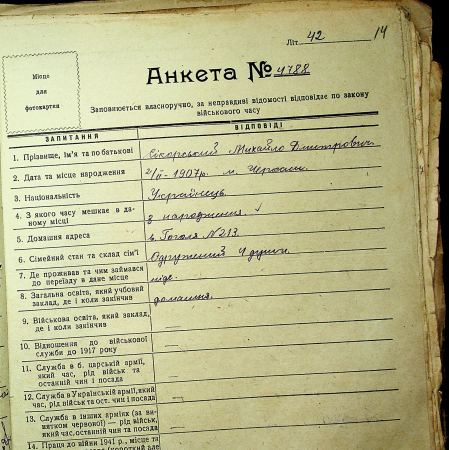 Літ 42 14
Місце
для
фотокартки
Анкета № 4788
Заповнюється власноручно, за неправдиві відомості відповідає по закону
військового часу
ЗАПИТАННЯ ВІДПОВІДІ
1. Прізвище, ім'я та по батькові Сікорський Михайло Дмитрович
2. Дата та місце народження 1907р. м. Черкаси.
3. Національність Українець.
4. З якого часу мешкає в да-
ному місці з народження.
5. Домашня адреса в. Гоголя №213.
6. Сімейний стан та склад сім'ї Одружений 4 душі.
7. Де проживав та чим займався
до переїзду в дане місце ніде.
8. Загальна освіта, який учбовий
заклад, де і коли закінчив домашня.
9. Військова освіта, який заклад,
де і коли закінчив
10. Відношення до військової
служби до 1917 року —
11. Служба в б. царській армії,
який час, рід військ та
останній чин і посада —
12. Служба в Українській армії, який
час, рід військ та ост. чин і посада —
13. Служба в інших арміях (за ви-
нятком червоної) — рід військ,
який час, останній чин та посада —
14. Праця до війни 1941 р., місце та